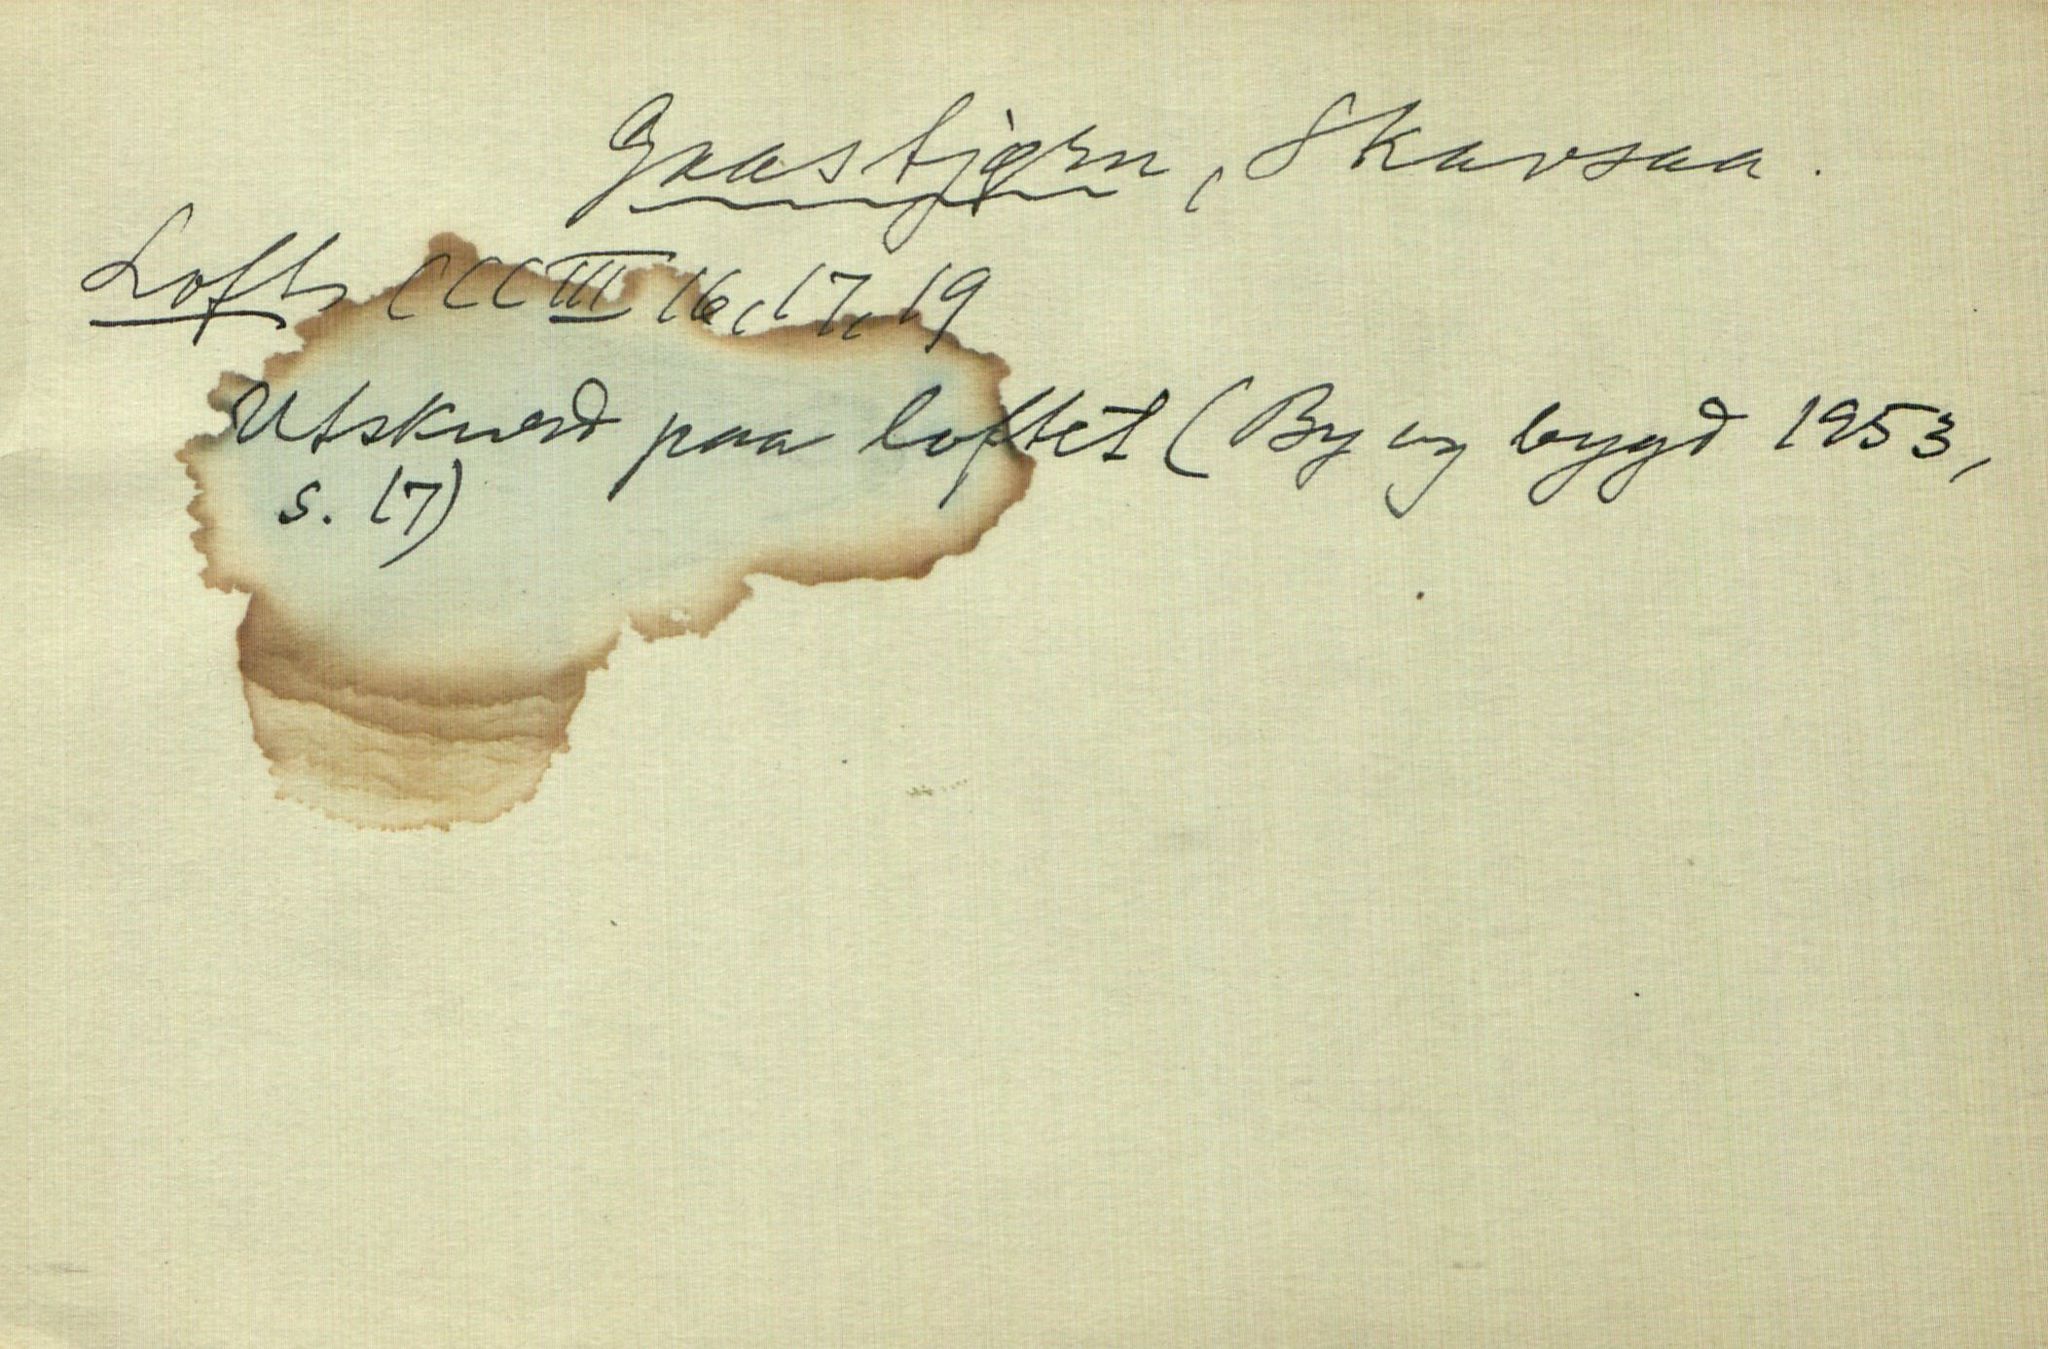 Gaastjørn, Skavsaa.
Loft CCCIII 16, 17, 19
Utskurd paa loftet (By og bygd 1953,
s. 17)